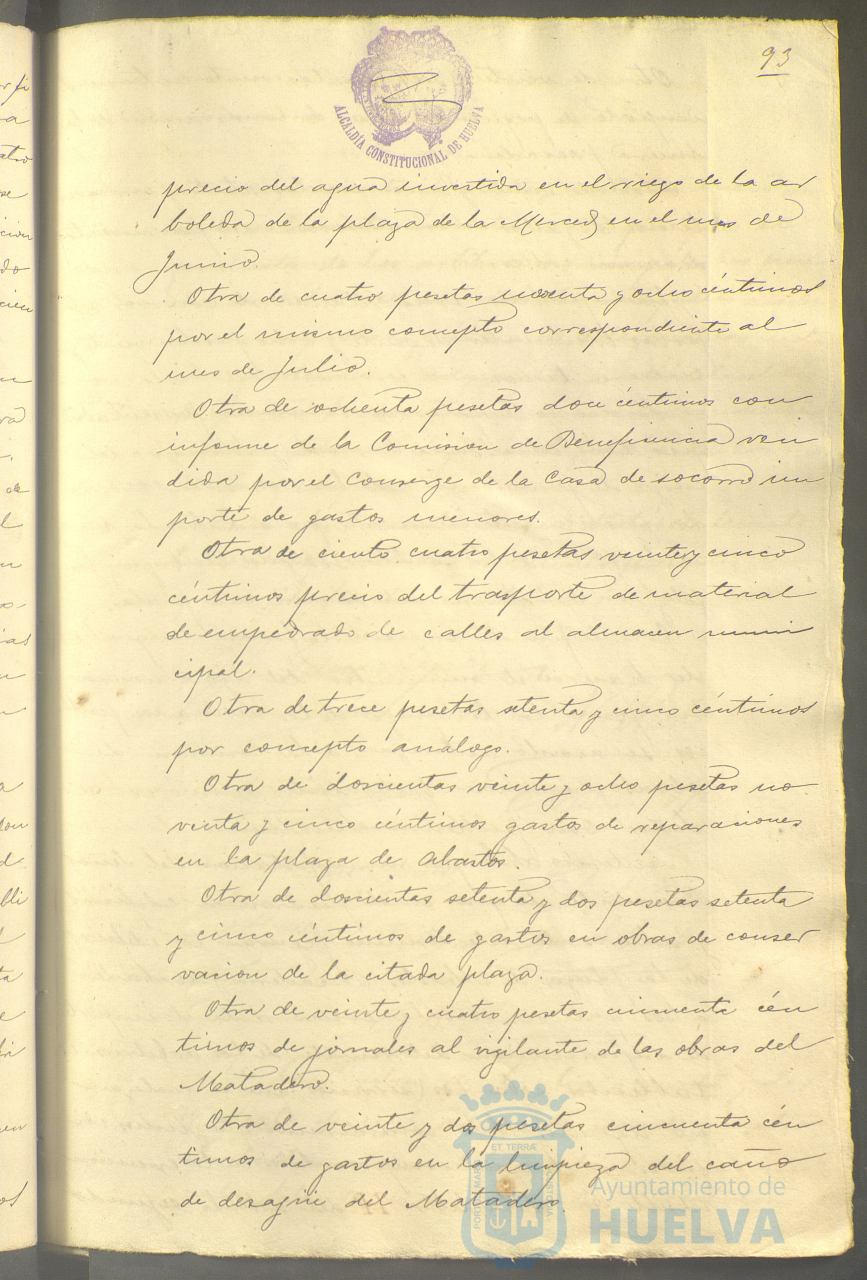 93
ALCALDÍA CONSTITUCIONAL DE HUELVA
precio del agua invertida en el riego de la ar
boleda de la plaza de la Merced en el mes de
Junio.
Otra de cuatro pesetas noventa y ocho céntimos
por el mismo concepto correspondiente al
mes de Julio.
Otra de ochenta pesetas doce céntimos con
informe de la Comision de Beneficencia ren
dida por el Conserge de la Casa de socorro im
porte de gastos menores.
Otra de ciento cuatro pesetas veinte y cinco
céntimos precio del trasporte de material
de empedrado de calles al almacen muni
cipal.
Otra de trece pesetas setenta y cinco céntimos
por concepto análogo.
Otra de doscientas veinte y ocho pesetas no
venta y cinco céntimos gastos de reparaciones
en la plaza de Abastos.
Otra de doscientas setenta y dos pesetas setenta
y cinco céntimos de gastos en obras de conser
vacion de la citada plaza.
Otra de veinte y cuatro pesetas cincuenta cén
timos de jornales al vigilante de las obras del
Matadero.
Otra de veinte y dos pesetas cincuenta cén
timos de gastos en la limpieza del caño
de desagüe del Matadero.
ET TERRÆ
Ayuntamiento de
HUELVA